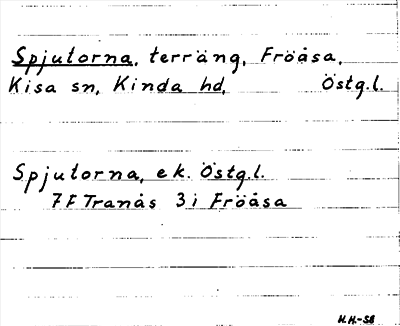 Spjutorna, terräng, Fröåsa,
Kisa sn, Kinda hd, Östg.l.
Spjutorna, ek. Östg.l.
7F Tranås 3i Fröåsa
H.H.-58